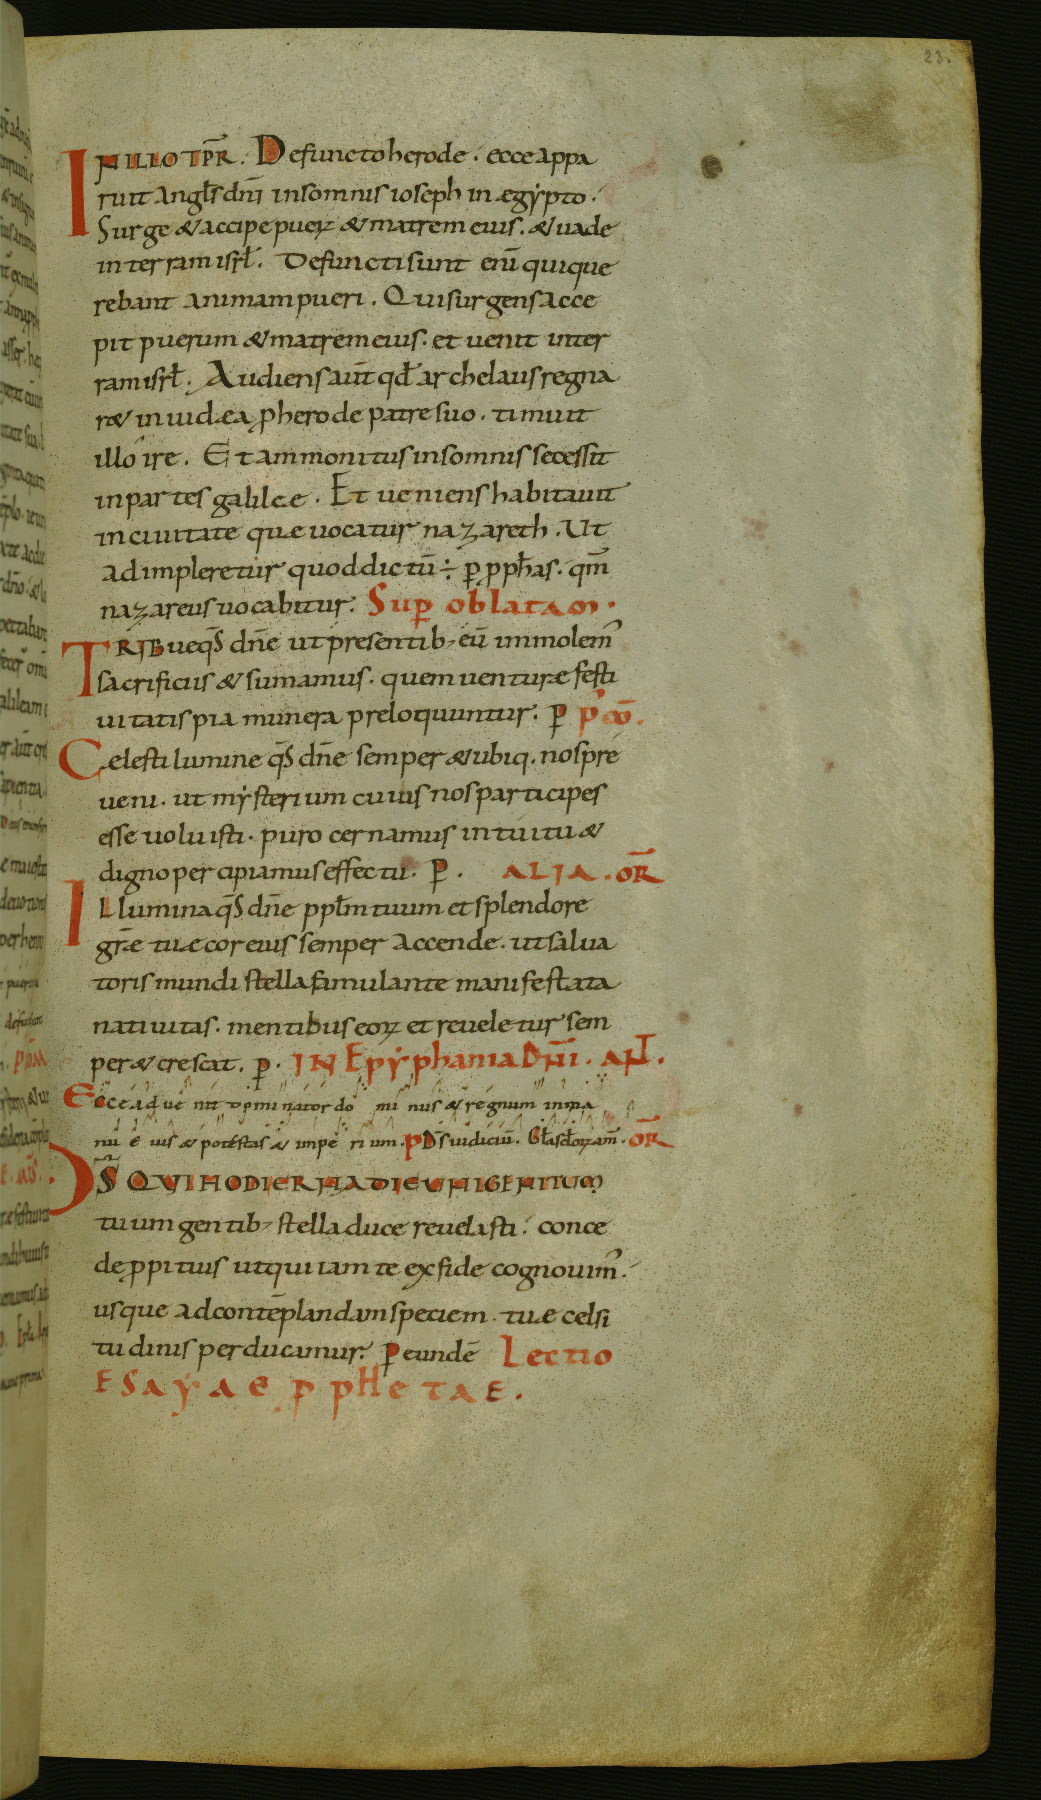 23.
IN ILLO TPR. Defuncto herode. ecce appa
ruit angls dni in somnis ioseph in ægypto.
Surge & accipe puerꝝ & matrem eius. & uade
in terram isrl. Defuncti sunt enī qui que
rebant animam pueri. Qui surgens acce
pit puerum & matrem eius. et uenit in ter
ram isrł. Audiens aūt qđ archelaus regna
r& in iudæa ꝓ herode patre suo. timuit
illo ire. Et ammonitus in somnis secessit
in partes galileæ. Et ueniens habitauit
in ciuitate quæ uocatur nazareth. Ut
adimpleretur quod dictū ÷ ꝑ ꝓphas. qm̄
nazareus uocabitur. Suꝑ oblatam.
TRIBue qs̄ dn̄e ut presentib; eū immolem᾽
sacrificiis & sumamus. quem uenturæ festi
uitatis pia munera preloquuntur. ꝑ P᾽ cō.
Cælesti lumine qs̄ dn̄e semper & ubiq. nos pre
ueni. ut mẏsterium cuius nos participes
esse uoluisti. puro cernamus intuitu &
digno percipiamus effectu. ꝑ. ALIA. OR̄
Illumina qs̄ dn̄e pplm̄ tuum et splendore
gr̄æ tuæ cor eius semper accende. ut salua
toris mundi stella famulante manifestata
natiuitas. mentibus eoꝝ et reueletur sem
per & crescat. ꝑ. IN Epẏphania DN̄I. ANT.
Ecce aduenit dominator dominus & regnum in ma
nu eius & potestas & imperium. P Ds̄ iudiciū. Gła scłoꝝ am̄. OR̄
DS̄ QUI HODIERNA DIE UNIGENITUM
tuum gentib; stella duce reuelasti. conce
de ꝓpitius ut qui iam te ex fide cognouim᾽.
usque ad contēplandam speciem tuæ celsi
tudinis perducamur. ꝑ eundē Lectio
ESAẎAE PPHETAE.